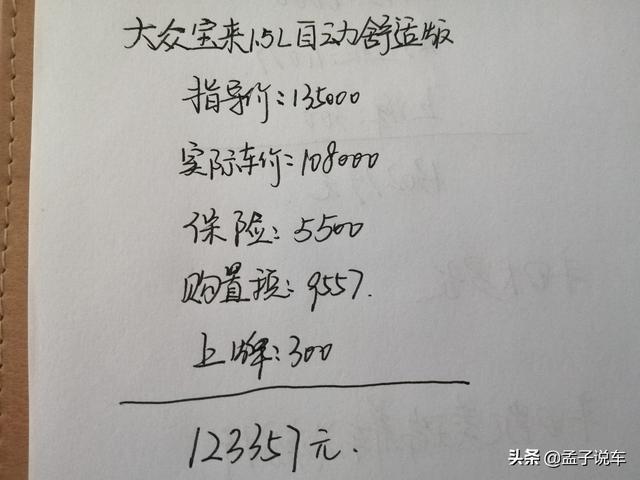 大众宝来1.5L自动舒适版
指导价:135000
实际车价:108000
保险:5500
购置税:9557.
上牌:300
123357元.
头条 @孟子说车